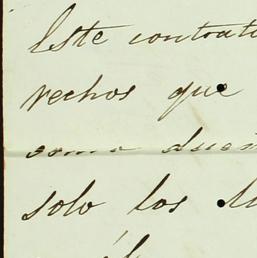 Este contrato
rechos que
como dueñ
solo los